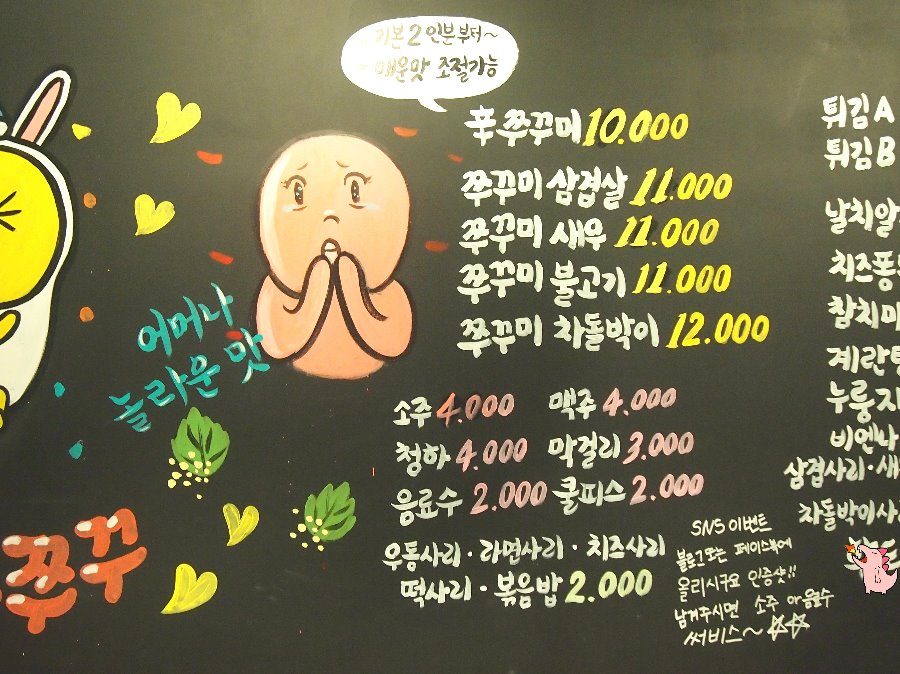 기본 2인분부터~
매운맛 조절가능
辛쭈꾸미 10.000
쭈꾸미 삼겹살 11.000
쭈꾸미 새우 11.000
쭈꾸미 불고기 11.000
쭈꾸미 차돌박이 12.000
어머나
놀라운 맛
소주 4.000 맥주 4.000
청하 4.000 막걸리 3.000
음료수 2.000 쿨피스 2.000
우동사리·라면사리·치즈사리
떡사리·볶음밥 2.000
쭈꾸
SNS 이벤트
블로그또는 페이스북에
올리시구요 인증샷!!
남겨주시면 소주 아음료수
써비스~
튀김A
튀김B
날치알
치즈퐁
참치마
계란
누룽지
비엔나
삼겹사리·새
차돌박이사